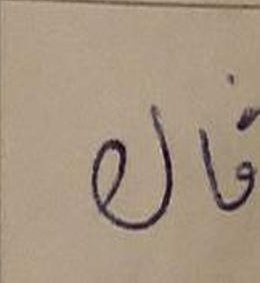 قال